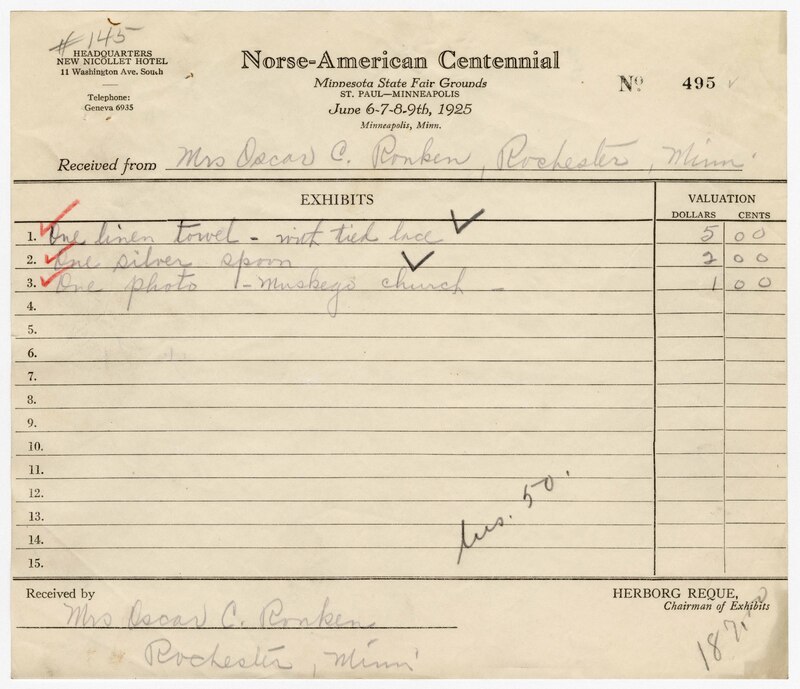 # 145
HEADQUARTERS
NEW NICOLLET HOTEL
11 Washington Ave. South
Telephone:
Geneva 6935
Norse-American Centennial
Minnesota State Fair Grounds
ST. PAUL—MINNEAPOLIS
June 6-7-8-9th, 1925
Minneapolis, Minn.
Nº 495
Received from Mrs Oscar C. Ronken, Rochester, Minn.
EXHIBITS
VALUATION
DOLLARS CENTS
1. One linen towel - with tied lace 5 00
2. One silver spoon 2 00
3. One photo - Muskego church - 1 00
4.
5.
6.
7.
8.
9.
10.
11.
12.
13.
14.
15.
Ins. 50.
Received by
Mrs Oscar C. Ronken
Rochester, Minn.
HERBORG REQUE,
Chairman of Exhibits